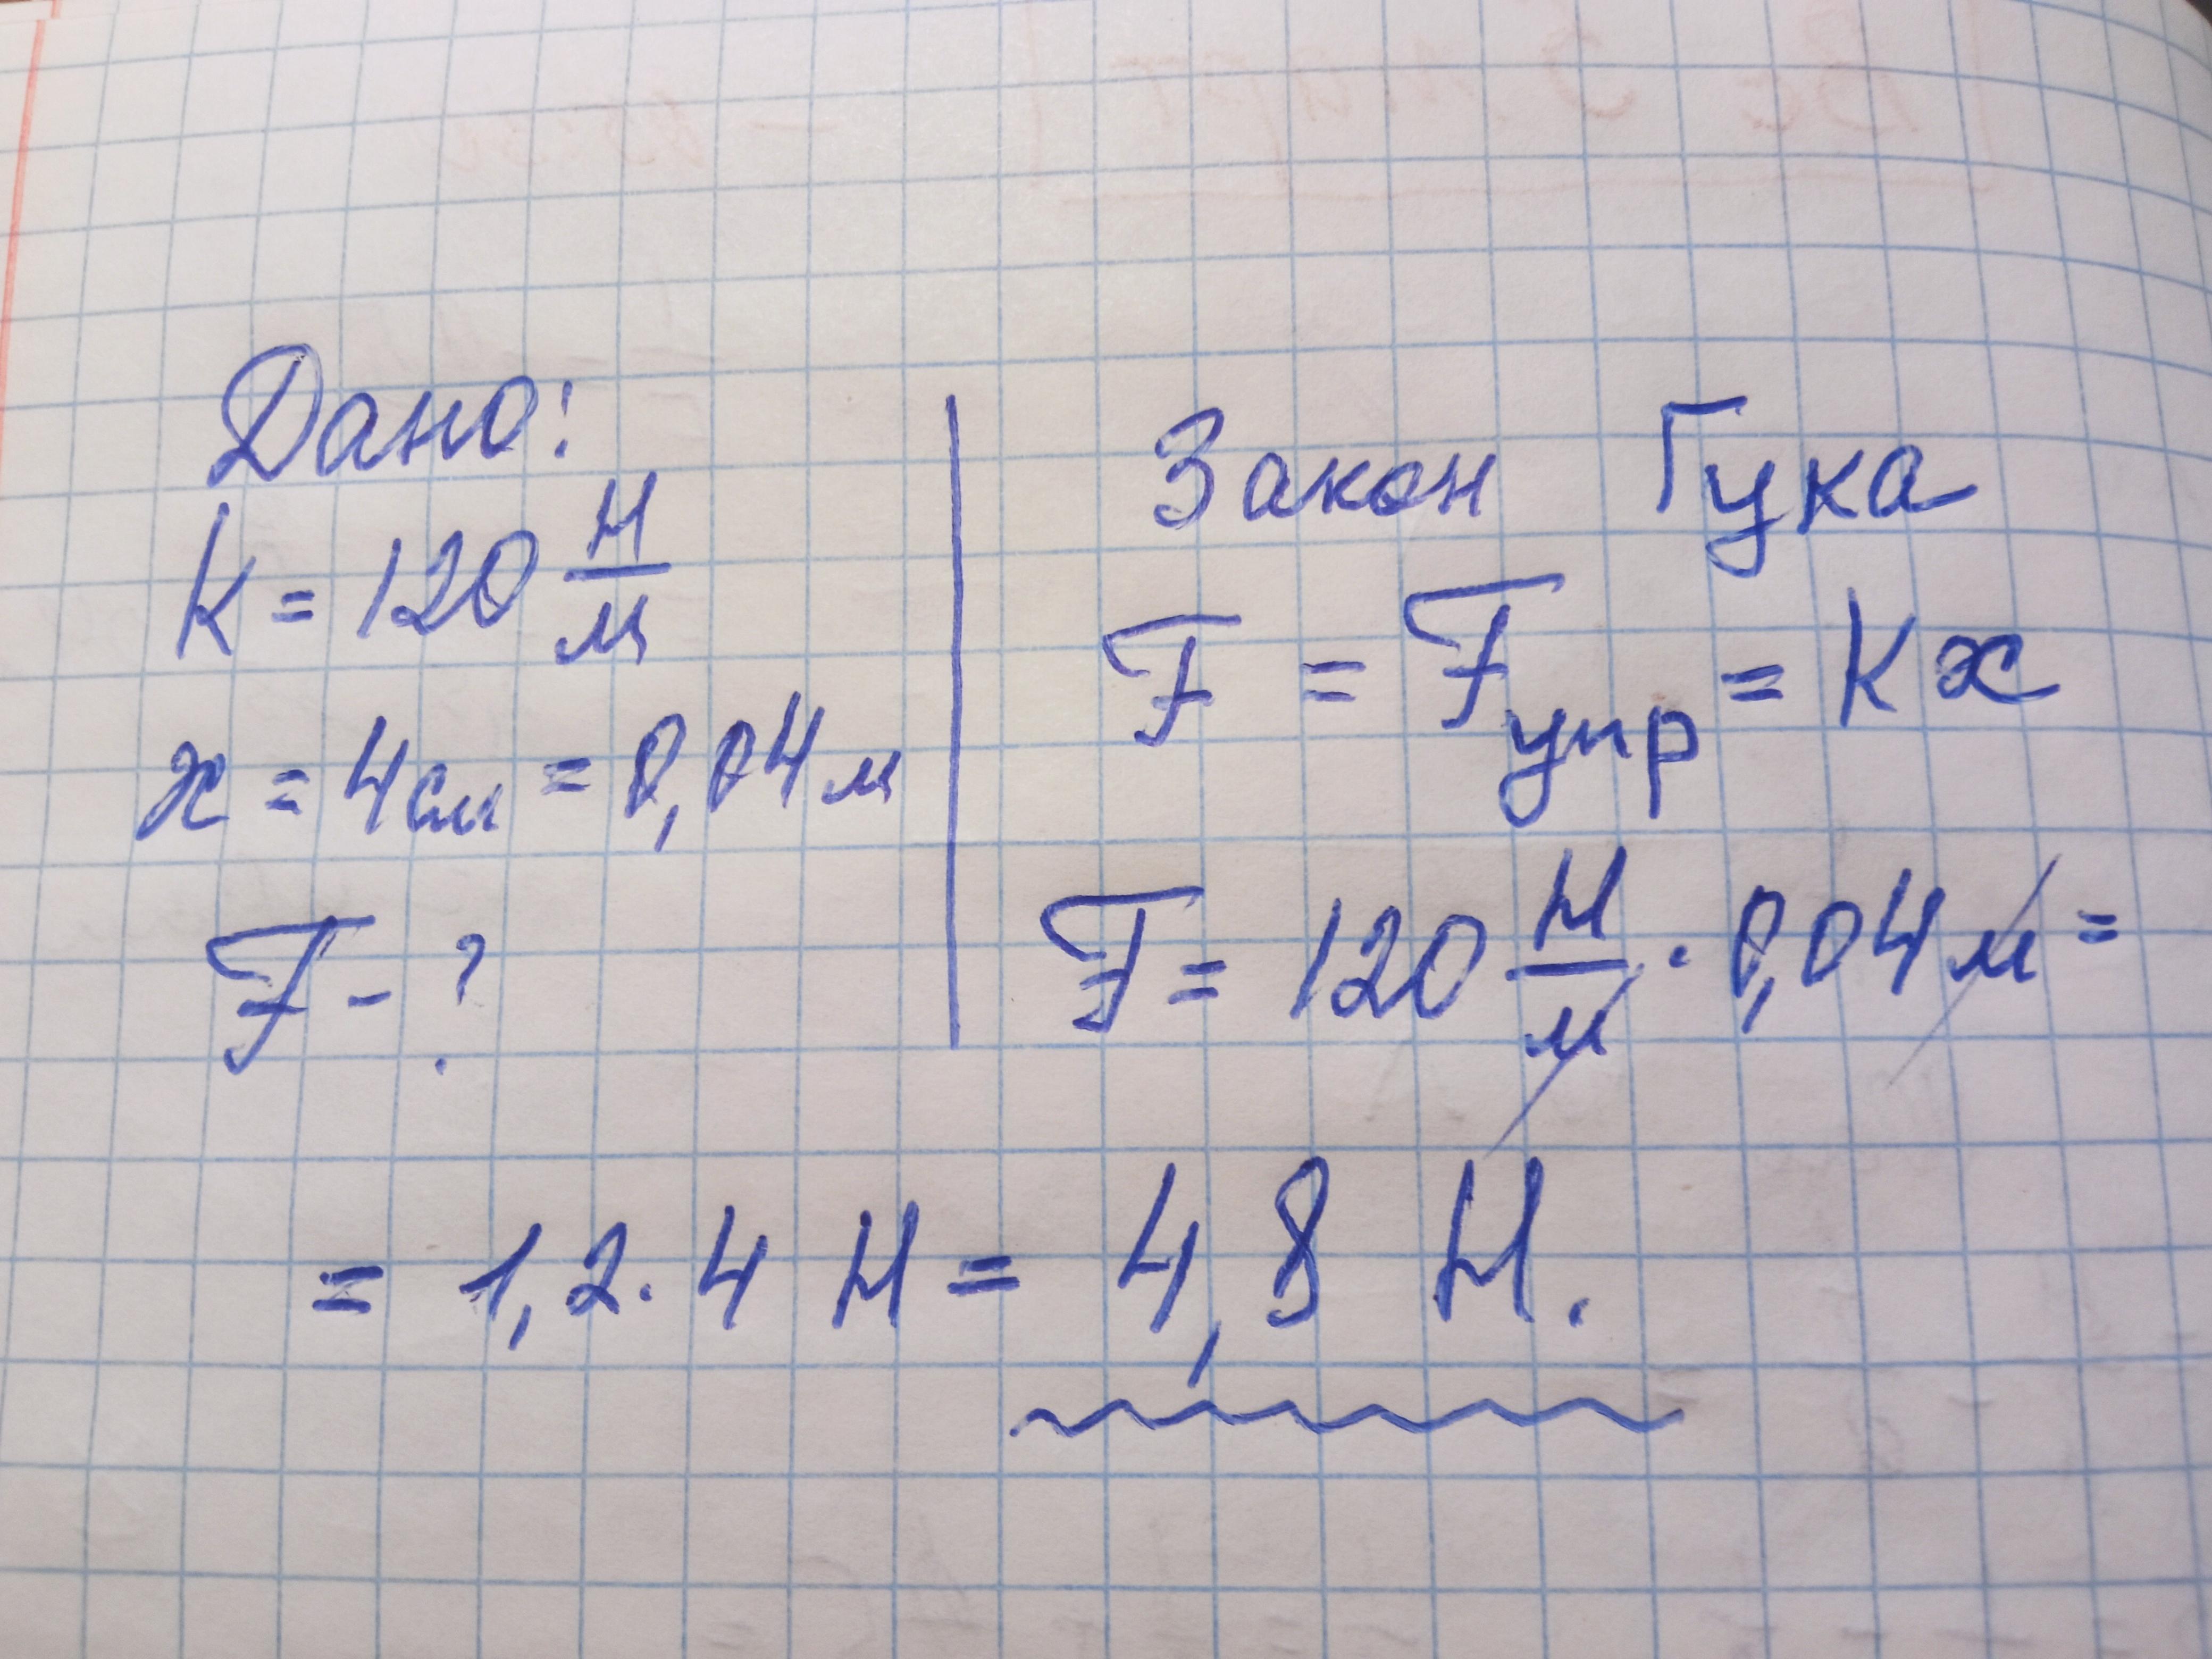 Дано:
k = 120 Н/м
x = 4 см = 0,04 м
F - ?
Закон Гука
F = Fупр = kx
F = 120 Н/м · 0,04 м =
= 1,2 · 4 Н = 4,8 Н.